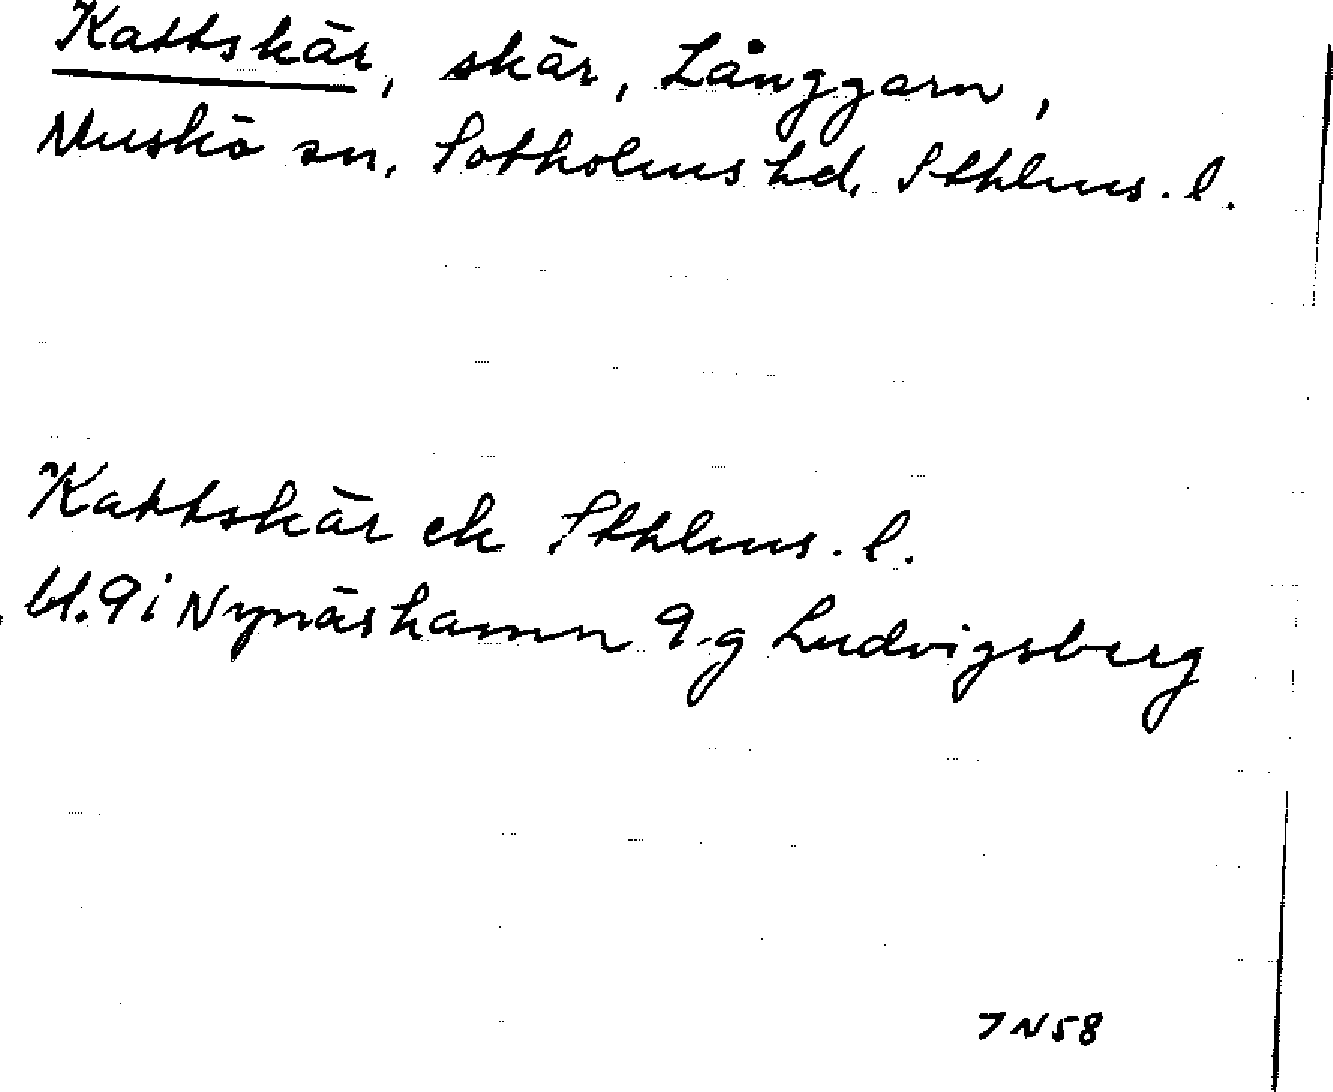 Kattskär, skär, Långgarn,
Muskö sn, Sotholms hd, Sthlms. l.
Kattskär ek Sthlms. l.
bl. 9 i Nynäshamn 9-g Ludvigsberg
7 N 58